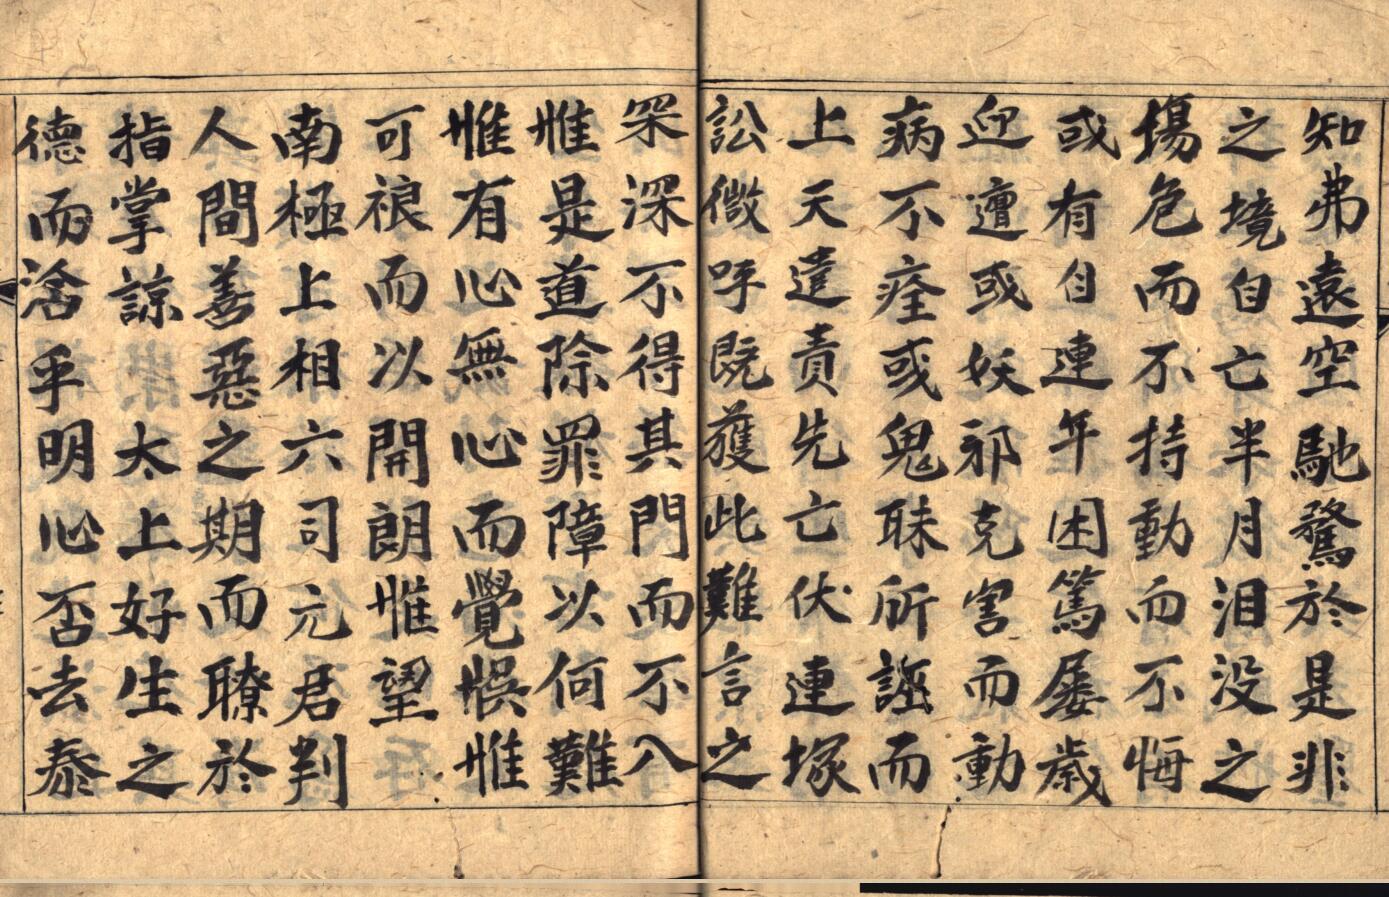 知弗遠空馳騖於是非
之境自亡半月泪没之
場危而不持動而不悔
或有自連年困篤屡歲
迎邅或妖邪克害而動
病不痊或鬼昧所誣而
上天遣責先亡伏連塚
訟徴呼既獲此難言之
罙深不得其門而不入
惟是道除罪障以何難
惟有心無心而覺悮惟
可禄而以開朗惟望
南極上相六司元君判
人間善惡之期而瞭於
指掌諒太上好生之
德而洽乎明心否去泰